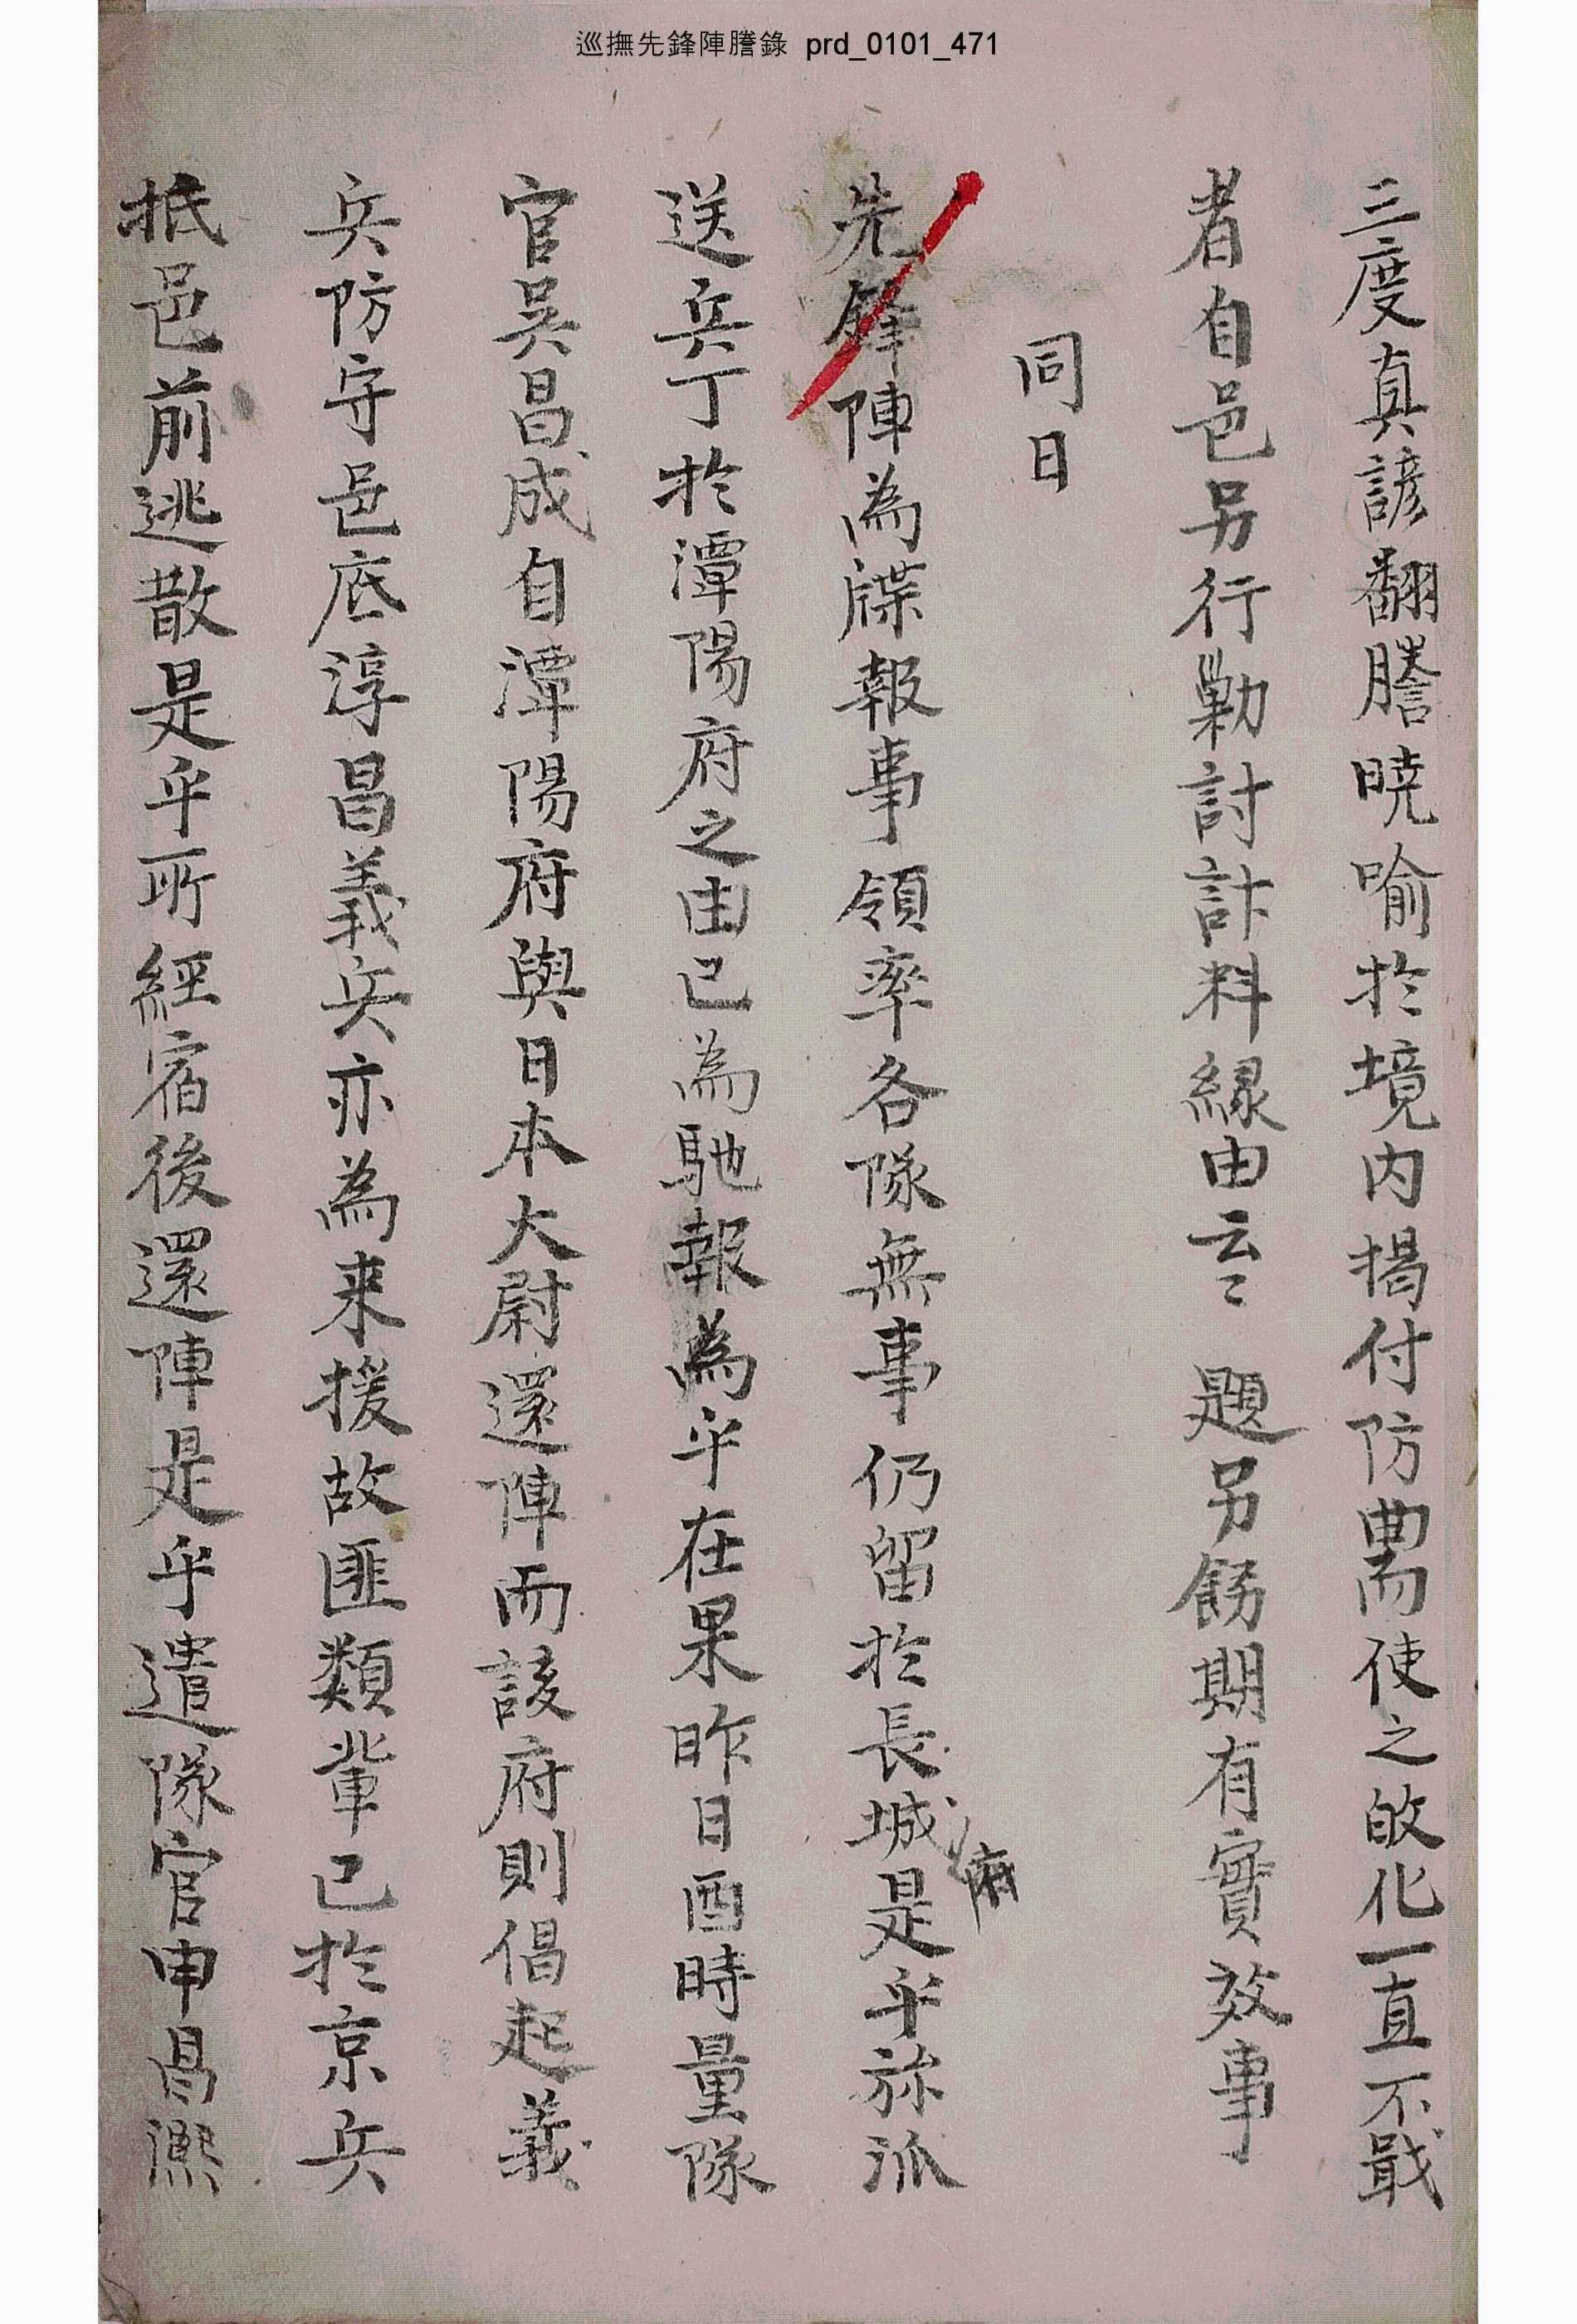 巡撫先鋒陣謄錄 prd_0101_471
三度真諺翻謄曉喻於境内揭付防曲而使之改化一直不戢
者自邑另行勦討計料緣由云〻 題另飭期有實效事
同日
先鋒陣為牒報事領率各隊無事仍留於長城府是乎旀派
送兵丁於潭陽府之由已為馳報為乎在果昨日酉時量隊
官吳昌成自潭陽府與日本大尉還陣而該府則倡起義
兵防守邑底淳昌義兵亦為来援故匪類輩已於京兵
抵邑前逃散是乎所經宿後還陣是乎遣隊官申昌熙